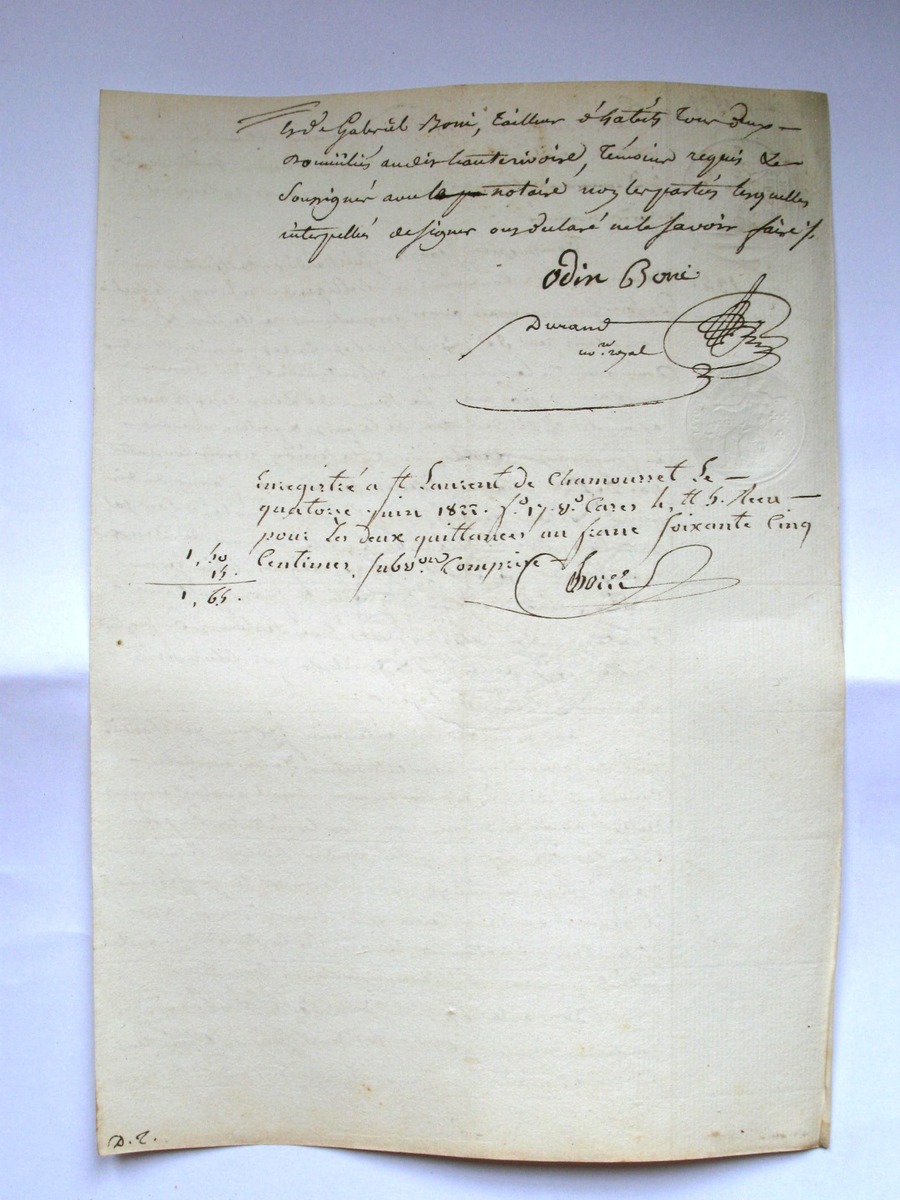 et de Gabriel Boni, tailleur d'habits tous deux
domiciliés audit hauterivoire, témoins requis &
soussignés avec le notaire non les parties lesquelles
interpellés de signer ont déclaré ne le savoir faire /.
Odin Boni
Durand
no.re royal
Enregistré a St Laurent de Chamousset Le
quatorze juin 1822. f.o 17 v.o Cases 4, & 5. Reçu
pour Les deux quittances un franc Soixante Cinq
Centimes, subv.on Comprise
1, 50
15.
1, 65.
D. T.